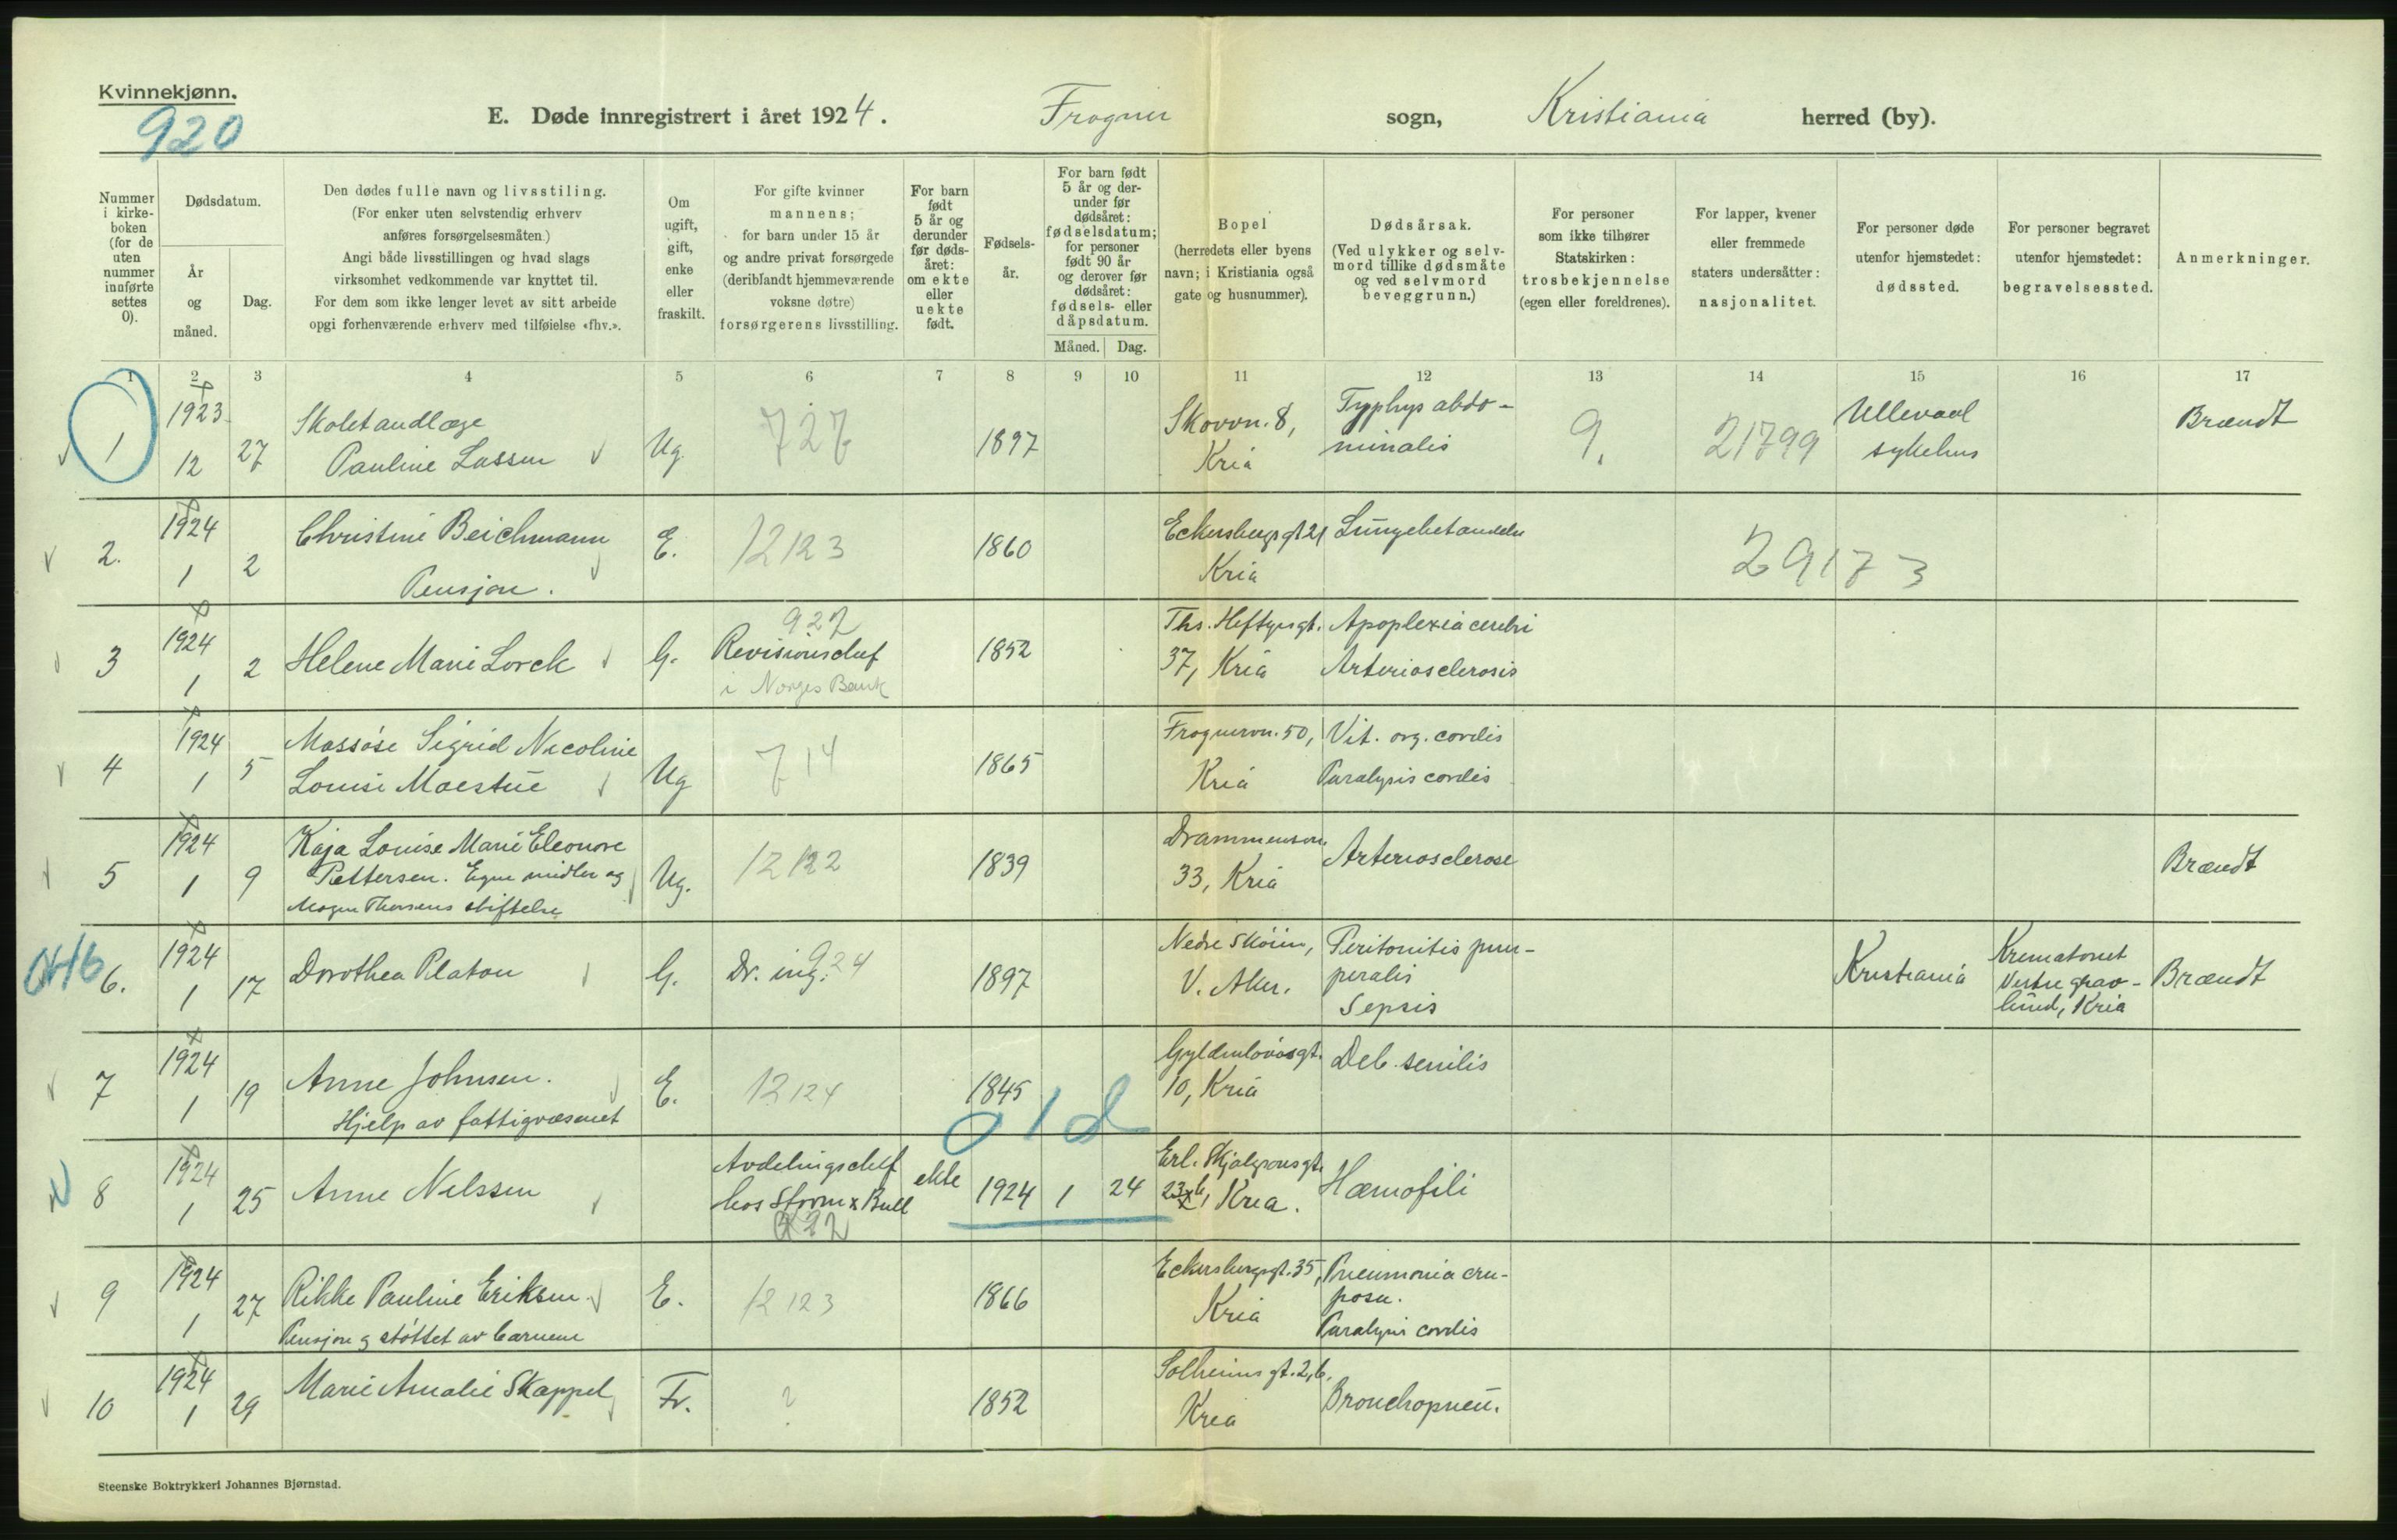 Kvinnekjønn.
920
E. Døde innregistrert i året 1924.
Frogner sogn, Kristiania herred (by).
Nummer i kirke-boken (for de uten nummer innførte settes 0).
Dødsdatum.
År og måned.
Dag.
Den dødes fulle navn og livsstiling.
(For enker uten selvstendig erhverv
anføres forsørgelsesmåten.)
Angi både livsstillingen og hvad slags
virksomhet vedkommende var knyttet til.
For dem som ikke lenger levet av sitt arbeide
opgi forhenværende erhverv med tilføielse «fhv.».
Om
ugift,
gift,
enke
eller
fraskilt.
For gifte kvinner
mannens;
for barn under 15 år
og andre privat forsørgede
(deriblandt hjemmeværende
voksne døtre)
forsørgerens livsstilling.
For barn
født
5 år og
derunder
før døds-
året:
om ekte
eller
uekte
født.
Fødsels-
år.
For barn født
5 år og der-
under før
dødsåret:
fødselsdatum;
for personer
født 90 år
og derover før
dødsåret:
fødsels- eller
dåpsdatum.
Måned. Dag.
Bopel
(herredets eller byens
navn; i Kristiania også
gate og husnummer).
Dødsårsak.
(Ved ulykker og selv-
mord tillike dødsmåte
og ved selvmord
beveggrunn.)
For personer
som ikke tilhører
Statskirken:
trosbekjennelse
(egen eller foreldrenes).
For lapper, kvener
eller fremmede
staters undersåtter:
nasjonalitet.
For personer døde
utenfor hjemstedet:
dødssted.
For personer begravet
utenfor hjemstedet:
begravelsessted.
Anmerkninger.
1 2 3 4 5 6 7 8 9 10 11 12 13 14 15 16 17
1 1923 12 27 Skoletandlæge Pauline Lassen Ug. 727 1897 Skovvn. 8, Kria Typhys abdo-minalis 9. 21799 Ullevaal sykehus Brændt
2. 1924 1 2 Christine Beichmann Pensjon. E. 12123 1860 Eckersbergs gt 21 Kria Lungebetændelse 29173
3 1924 1 2 Helene Marie Lorck G. 927 Revisionschef i Norges Bank 1852 Ths. Heftyesgt. 37, Kria Apoplexia cerebri Arteriosclerosis
4 1924 1 5 Massøse Sigrid Nicoline Louise Moestue Ug 714 1865 Frognervn. 50, Kria Vit. org. cordis Paralysis cordis
5 1924 1 9 Kaja Louise Marie Eleonore Pettersen. Egne midler og Mogen Thorsens stiftelse Ug. 12122 1839 Drammensvn. 33, Kria Arteriosclerose Brændt
6. 1924 1 17 Dorothea Platou G. Dr. ing. 924 1897 Nedre Skøien, V. Aker. Peritonitis puer-peralis Sepsis Kristiania Krematoriet Vestre grav-lund, Kria Brændt
7 1924 1 19 Anne Johnsen. Hjelp av fattigvæsenet E. 12124 1845 Gyldenløvesgt. 10, Kria Deb. senilis
8 1924 1 25 Anne Nilssen Avdelingschef hos Storm & Bull 922 ekte 1924 1 24 01d Erl. Skjalgsonsgt. 23 b, Kria. Hæmofili
9 1924 1 27 Rikke Pauline Eriksen Pensjon og støttet av barnene E. 12123 1866 Eckersbergsgt. 35, Kria Pneumonia cru-posa. Paralysis cordis
10 1924 1 29 Marie Amalie Skappel Fr. ? 1852 Solheimsgt. 2, b, Kria Bronchopneu.
Steenske Boktrykkeri Johannes Bjørnstad.